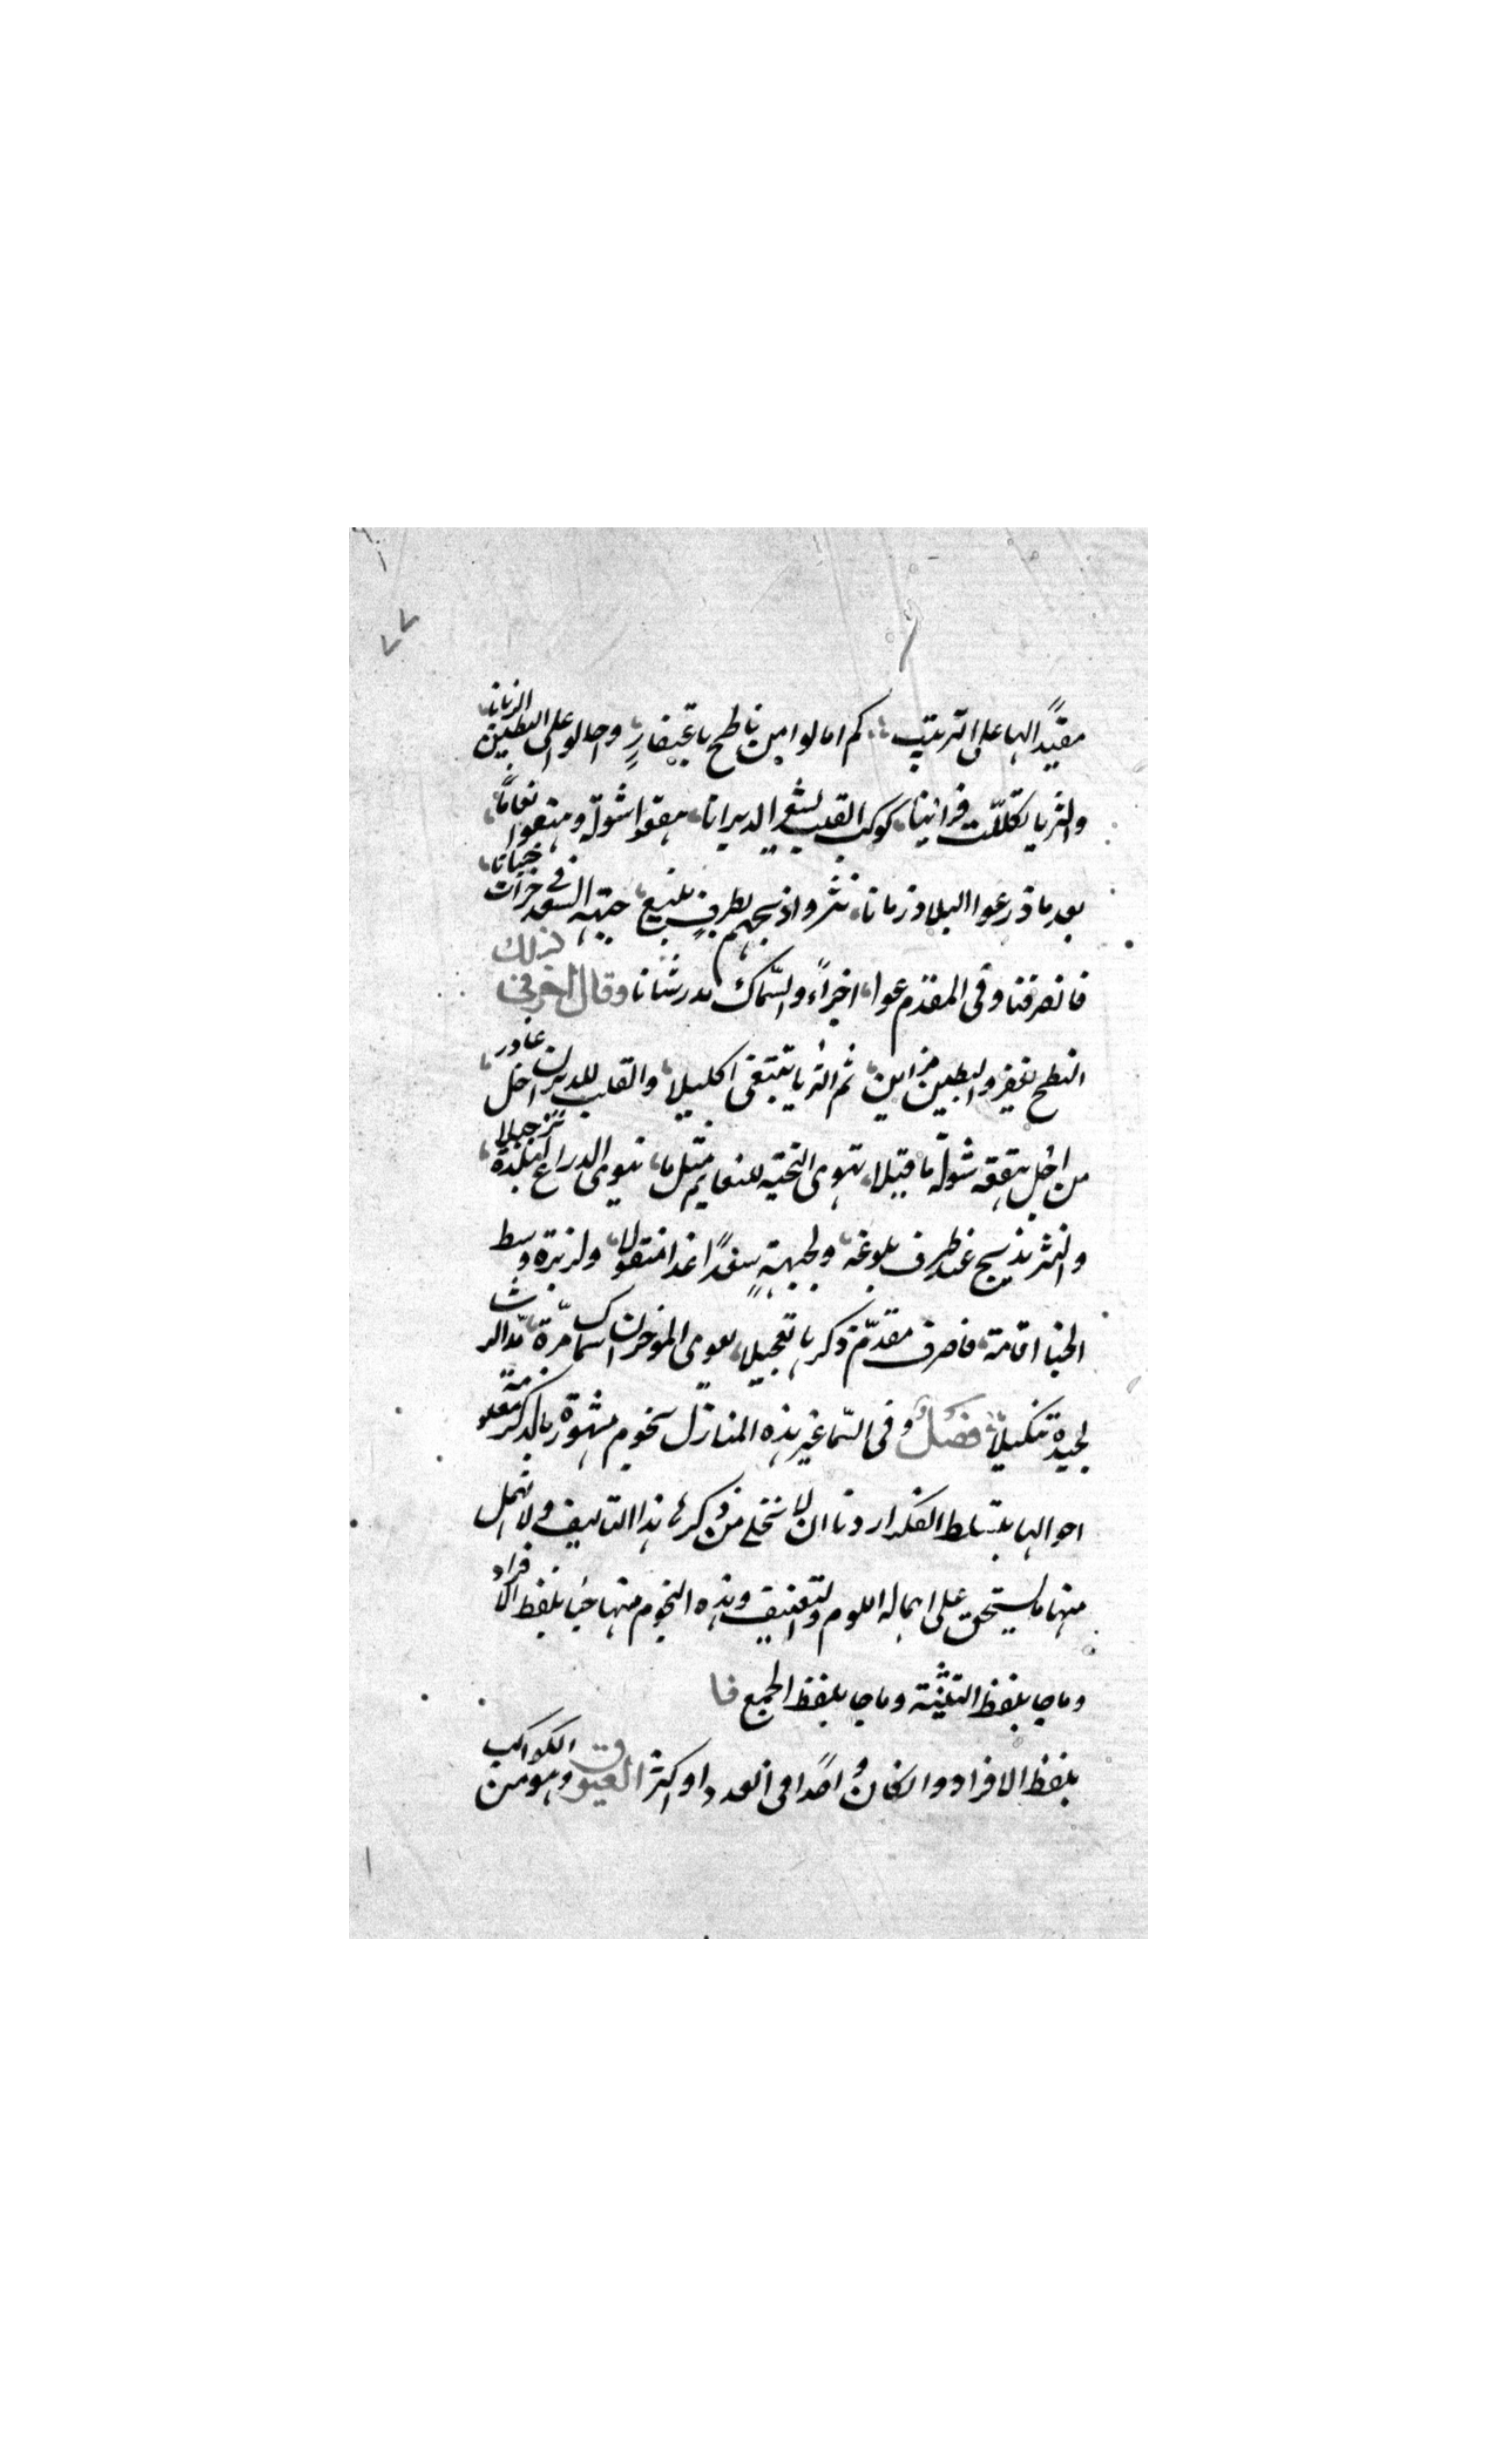 ٧٧
مقيدًا لها على الترتيب كم امالوا من ناطح باغتفارٍ واحالوا على البطين الزبانا
والثريا تكللت فراينا كوكب القلب يشعر الدبرانا هقعوا شولة وهنعوا نعامًا
بعد ما ذرعوا البلاد زمانا نثروا ذبحهم بطرفٍ بلع جبهة السعد في خبانا
فانصرفنا وفى المقدم عوا اخيراً والسماك مد رشانا وقال اخر فى ذلك
النطح يغفر والبطين مزاين ثم الثريا تبتغى اكليلا والقلب للدبران غادر
من اجل هقعه شولة ما قيلا تهوى التحية للنعايم مثل ما تهوى الذراع البلدة
والنثر يذبح عند طرف بلوغه ولجبهةٍ سعدًا غدا منقولا ولزبرة وسط
الخبا اقامة فاصرف مقدّم ذكرها تعجيلا يعوى الموخر ان سماك مرّة مد الرشا
لجيده تنكيلا فصل وفى السما غير هذه المنازل نجوم مشهورة بالذكر معلومة
احوالها الفكر اردنا ان لا نخلى من ذكرها هذا التاليف ولا نهمل
منها ما يستحق على اهماله اللوم والتعنيف وهذه النجوم منها ما جا بلفظ الافراد
وما جا بلفظ التثنية وما جا بلفظ الجمع فما
بلفظ الافراد وان كان واحدًا فى العدد او اكثر العيوق وهو من الكواكب